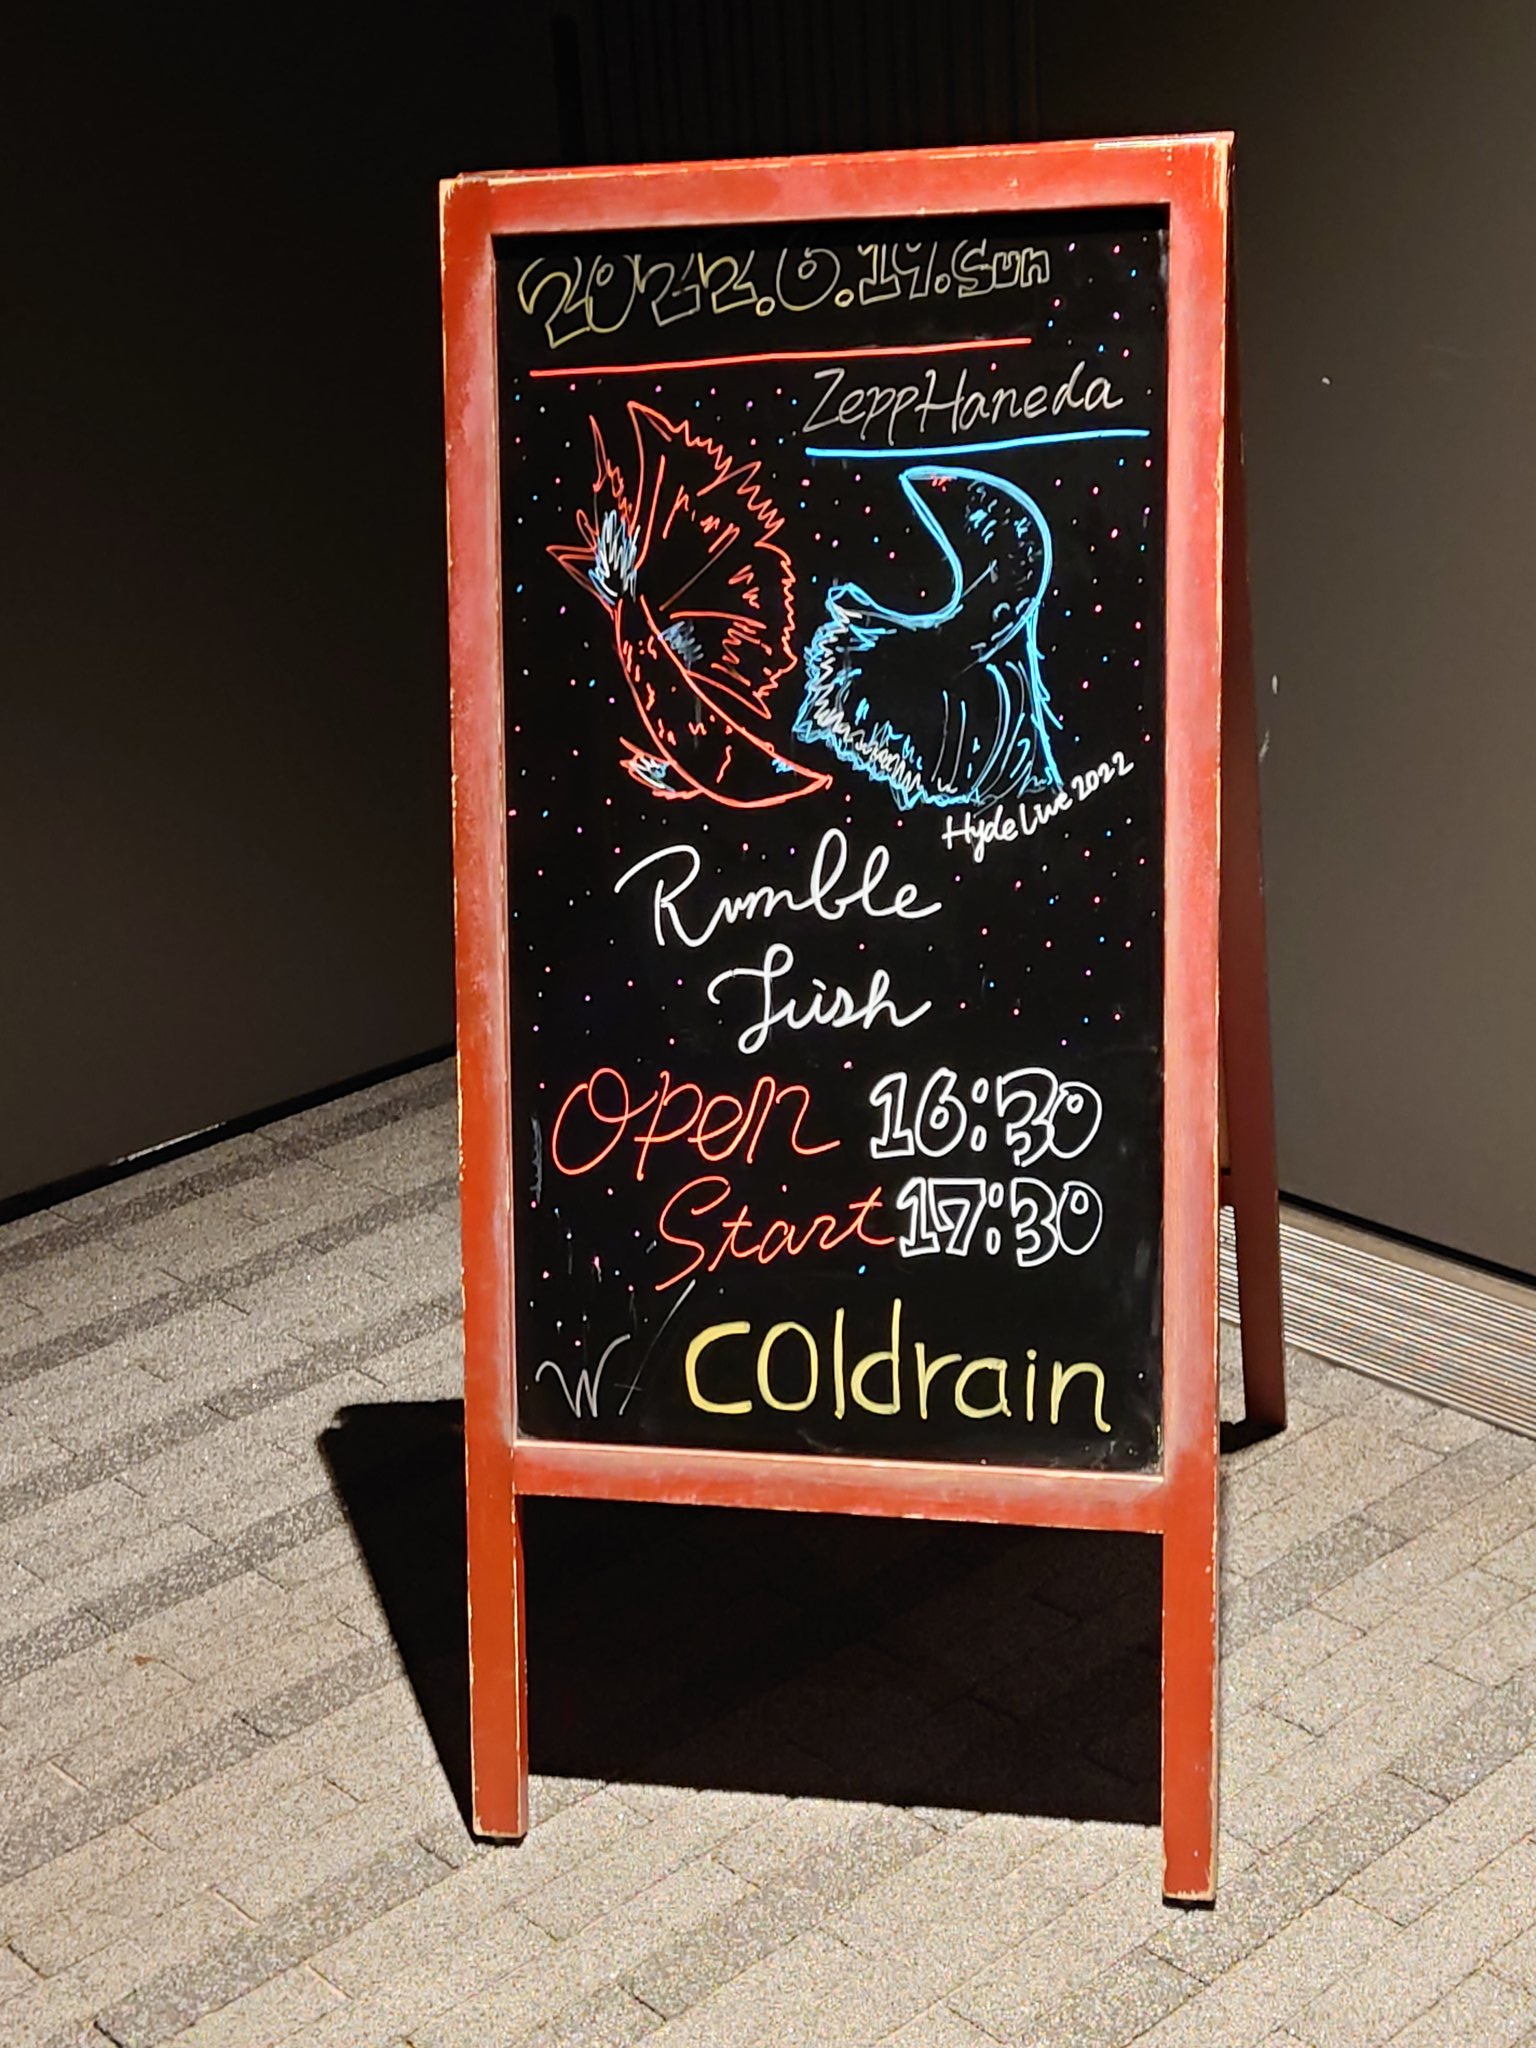 2022.6.19.Sun
ZeppHaneda
Hyde Live 2022
Rumble
Fish
Open 16:30
Start 17:30
W/ coldrain